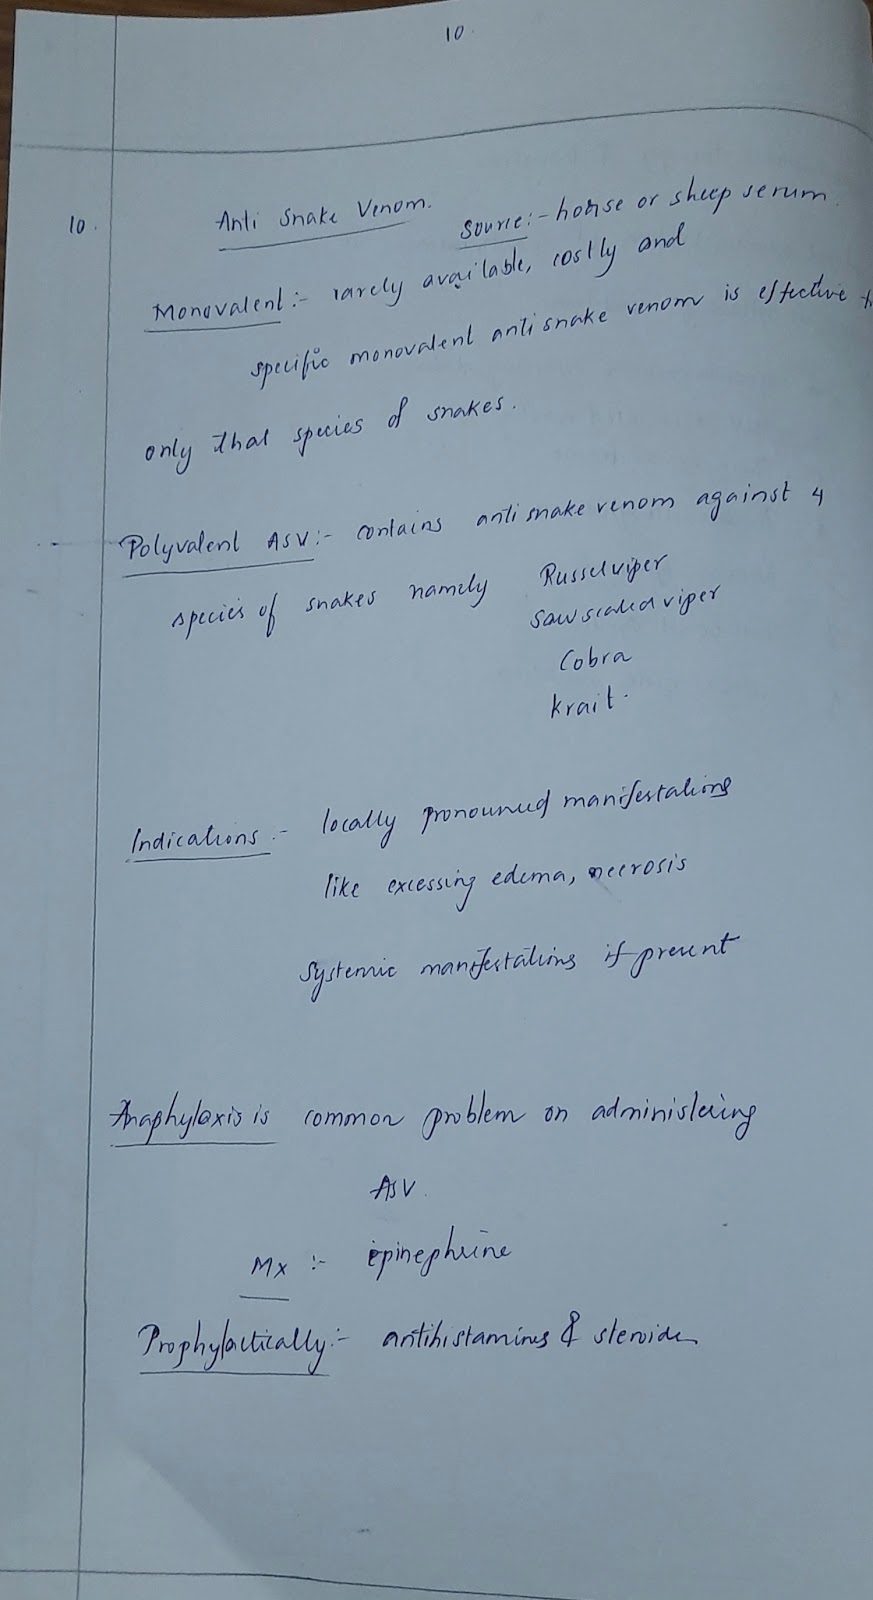 10
10. Anti Snake Venom.
Source:- horse or sheep serum.
Monovalent:- rarely available, costly and
specific monovalent anti snake venom is effective
only that species of snakes.
Polyvalent ASV:- contains anti snake venom against 4
species of snakes namely Russel viper
Saw scaled viper
Cobra
Krait.
Indications:- locally pronounced manifestations
like excessing edema, necrosis
Systemic manifestations if present
Anaphylaxis is common problem on administering
ASV.
Mx :- epinephrine
Prophylactically:- antihistamines & steroids